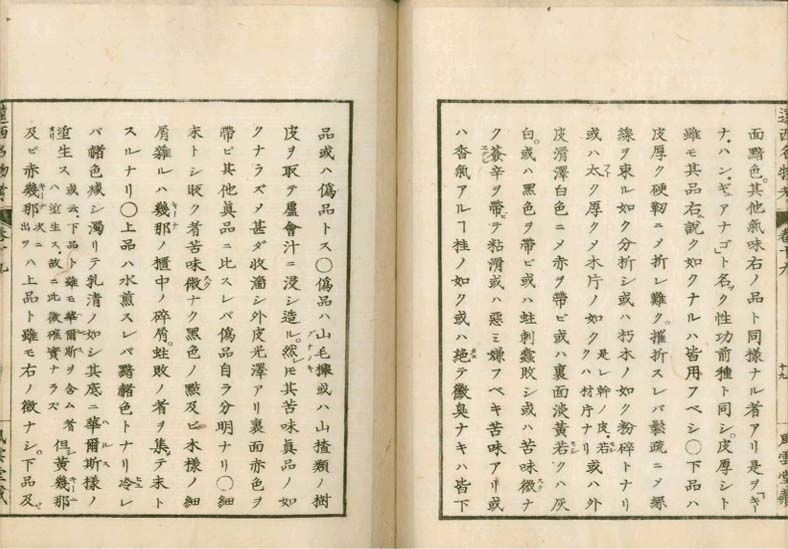 遠西名物考 卷十九 十九 風雲堂藏
面黯色。其他氣味右ノ品ト同樣ナル者アリ是ヲ「キー
ナ、ハン、ギアナゴ」ト名ク性功前種ト同シ。皮厚シト
雖モ其品右ニ說ク如クナルハ皆用フベシ〇下品ハ
皮厚ク硬靭ニメ折レ難ク。摧折スレバ鬆疏ニメ
線ヲ束ル如ク分析シ或ハ朽木ノ如ク粉碎トナリ
或ハ太ク厚クメ木片ノ如ク 是レ幹ノ皮。若クハ材片ナリ 或ハ外
皮滑澤白色ニメ赤ヲ帶ビ或ハ裏面淡黃若クハ灰
白。或ハ黑色ヲ帶ビ或ハ蛀刺蠧敗シ或ハ苦味微ナ
ク薟辛ヲ帶テ粘滑或ハ惡ミ嫌フベキ苦味アリ或
ハ香氣アルヿ桂ノ如ク或ハ絶テ黴臭ナキハ皆下
品或ハ僞品トス〇僞品ハ山毛欅或ハ山楂類ノ樹
皮ヲ取テ蘆會汁ニ浸シ造ル。然レモ其苦味眞品ノ如
クナラズメ甚ダ收濇シ外皮光澤アリ裏面赤色ヲ
帶ビ其他眞品ニ比スレバ僞品自ラ分明ナリ〇細
末トシ販ク者苦味微ナク黑色ノ點及ビ木樣ノ細
屑雜ルハ幾那ノ櫃中ノ碎屑。蛀敗ノ者ヲ集テ末ト
スルナリ〇上品ハ水煎スレバ黯赭色トナリ冷レ
バ赭色減シ濁リテ乳清ノ如シ其底ニ華爾斯樣ノ
滓生ス 或云、下品ト雖モ華爾斯ヲ含ム者ハ滓生ス。故ニ此徵確實ナラズ 但黃幾那
及ビ赤幾那 次ニ出ヅ ハ上品ト雖モ右ノ徵ナシ。下品及ビ
遠西名物考 卷十九 風雲堂藏